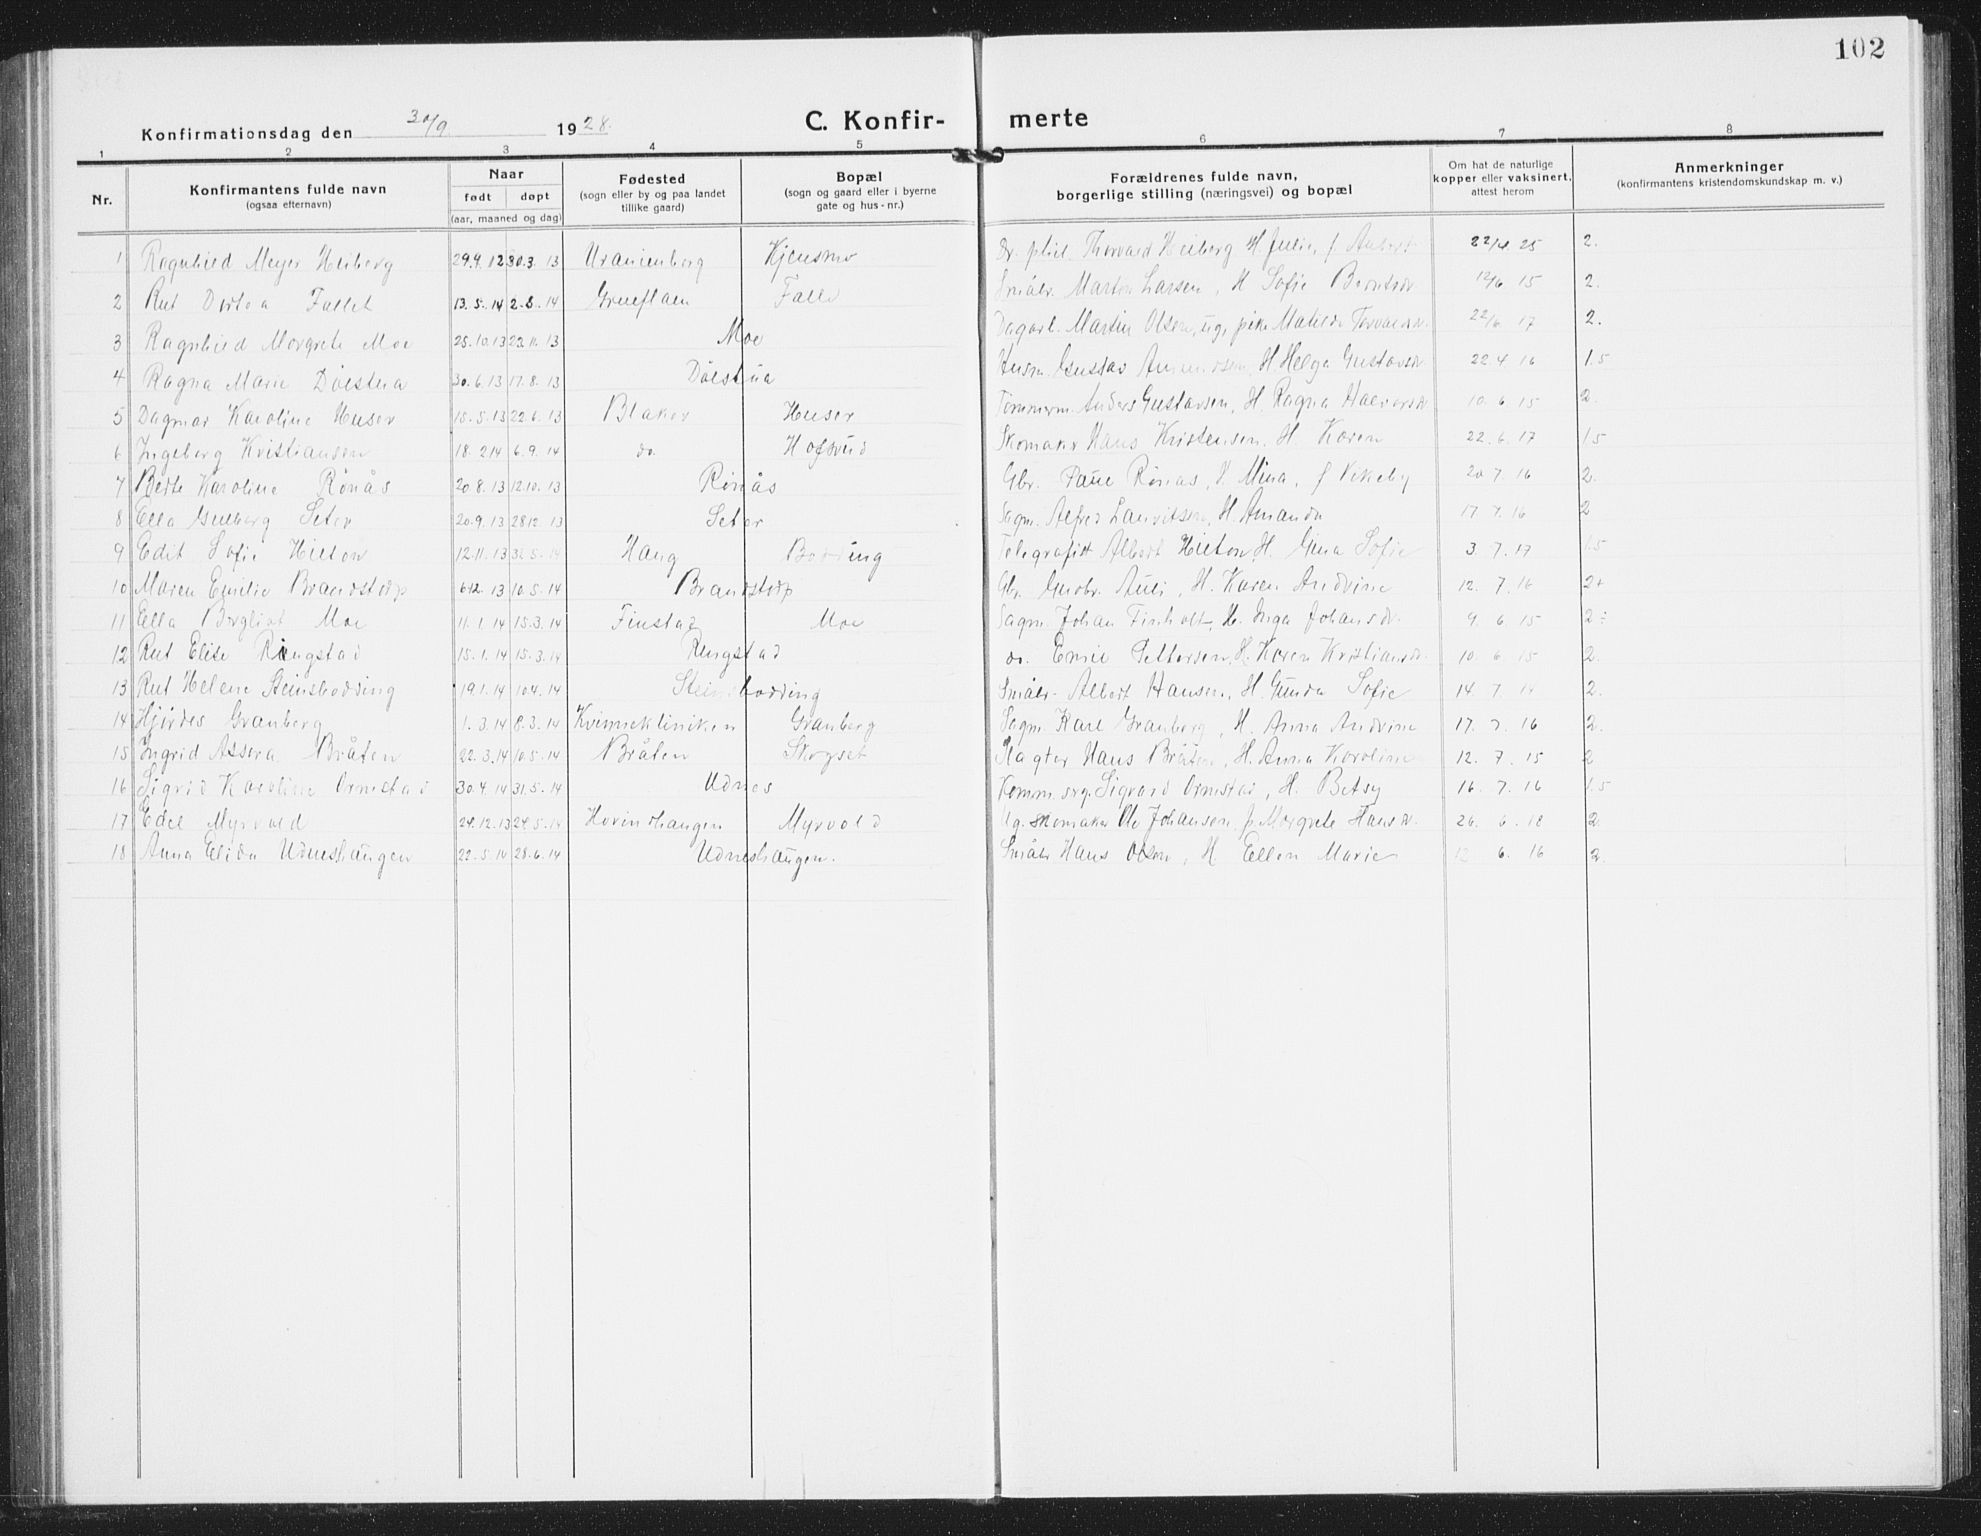 102
Konfirmationsdag den 30/9 1928. C. Konfir- merte
1 2 3 4 5 6 7 8
Nr.
Konfirmantens fulde navn
(ogsaa efternavn)
Naar
født døpt
(aar, maaned og dag)
Fødested
(sogn eller by og paa landet
tillike gaard)
Bopæl
(sogn og gaard eller i byerne
gate og hus-nr.)
Forældrenes fulde navn,
borgerlige stilling (næringsvei) og bopæl
Om hat de naturlige
kopper eller vaksinert,
attest herom
Anmerkninger
(konfirmantens kristendomskundskap m. v.)
1 Ragnhild Meyer Heiberg 29.9.12 30.3.13 Uranienborg Kjensmo Dr. phil. Thorvald Heiberg H. Julie, f. Aubert 25 2.
2 Rut Dortea Fallet 13.5.14 2.8.14 Falle Småbr. Martin Larsen, H. Sofie Berntsdr. 12/6 15 2.
3 Ragnhild Margrete Moe 25.10.13 23.11.13 Moe Dagarb. Martin Olsen, ug. pike Matilde Torvaldsdr. 22/6 17 2.
4 Ragna Marie Dölestua 30.6.13 17.8.13 Dölestua Husm. Gustav Amundsen, H. Helga Gustavsdr. 22.4 16 1.5
5 Dagmar Karoline Huser 15.5.13 22.6.13 Blaker Huser Tömmerm. Anders Gustavsen, H. Ragna Halvorsdr. 10.6.15 2.
6 Ingeborg Kristiansen 18.2.14 6.9.14 do. Hofsrud Skomaker Hans Kristensen, H. Karen 22.6.17 1.5
7 Berte Karoline Rönås 20.8.13 12.10.13 Rönås Gbr. Paul Rönås, H. Mina, f. Vikeby 20 7.16 2.
8 Ella Gunborg Seter 20.9.13 28.12.13 Seter Sagm. Alfred Lauritsen, H. Amanda 17.7.16 2
9 Edit Sofie Hilton 12.11.13 31.5.14 Haug Bodding Telegrafist Albert Hilton, H. Gina Sofie 3.7.17 1.5
10 Maren Emilie Brandstorp 6.12.13 10.5.14 Brandstorp Gbr. Gudbr. Auli, H. Karen Andrine 12.7.16 2+
11 Ella Bergliot Moe 11.1.14 15.3.14 Finstad Moe Sagm. Johan Finholt, H. Inga Johansdr. 9.6.15 2÷
12 Rut Elise Ringstad 15.1.14 15.3.14 Ringstad do. Emil Pettersen, H. Karen Kristiansdr. 10.6.15 2.
13 Rut Helene Stensbodding 19.1.14 10.4.14 Steinsbodding Småbr. Albert Hansen, H. Gunda Sofie 14.7.14 2.
14 Hjördes Granberg 1.3.14 8.3.14 Kvinneklinikken Granberg Sagm. Karl Granberg, H. Anna Andrine 17.7.16 2.
15 Ingrid Assora Bråten 22.3.14 10.5.14 Bråten Skogset Slagter Hans Bråten, H. Anna Karoline 12.7.15 2
16 Sigrid Karoline Ormstad 30.4.14 31.5.14 Udnes Komm.arg. Sigvard Ormstad, H. Betsy 16.7.16 1.5
17 Edel Myrvold 24.12.13 24.5.14 Hovinshaugen Myrvold Ug. skomaker Ole Johansen, p. Margrete Hansdr. 26.6.18 2
18 Anna Elida Udneshaugen 22.5.14 28.6.14 Udneshaugen. Småbr. Hans Olsen, H. Ellen Marie 12 6.16 2.